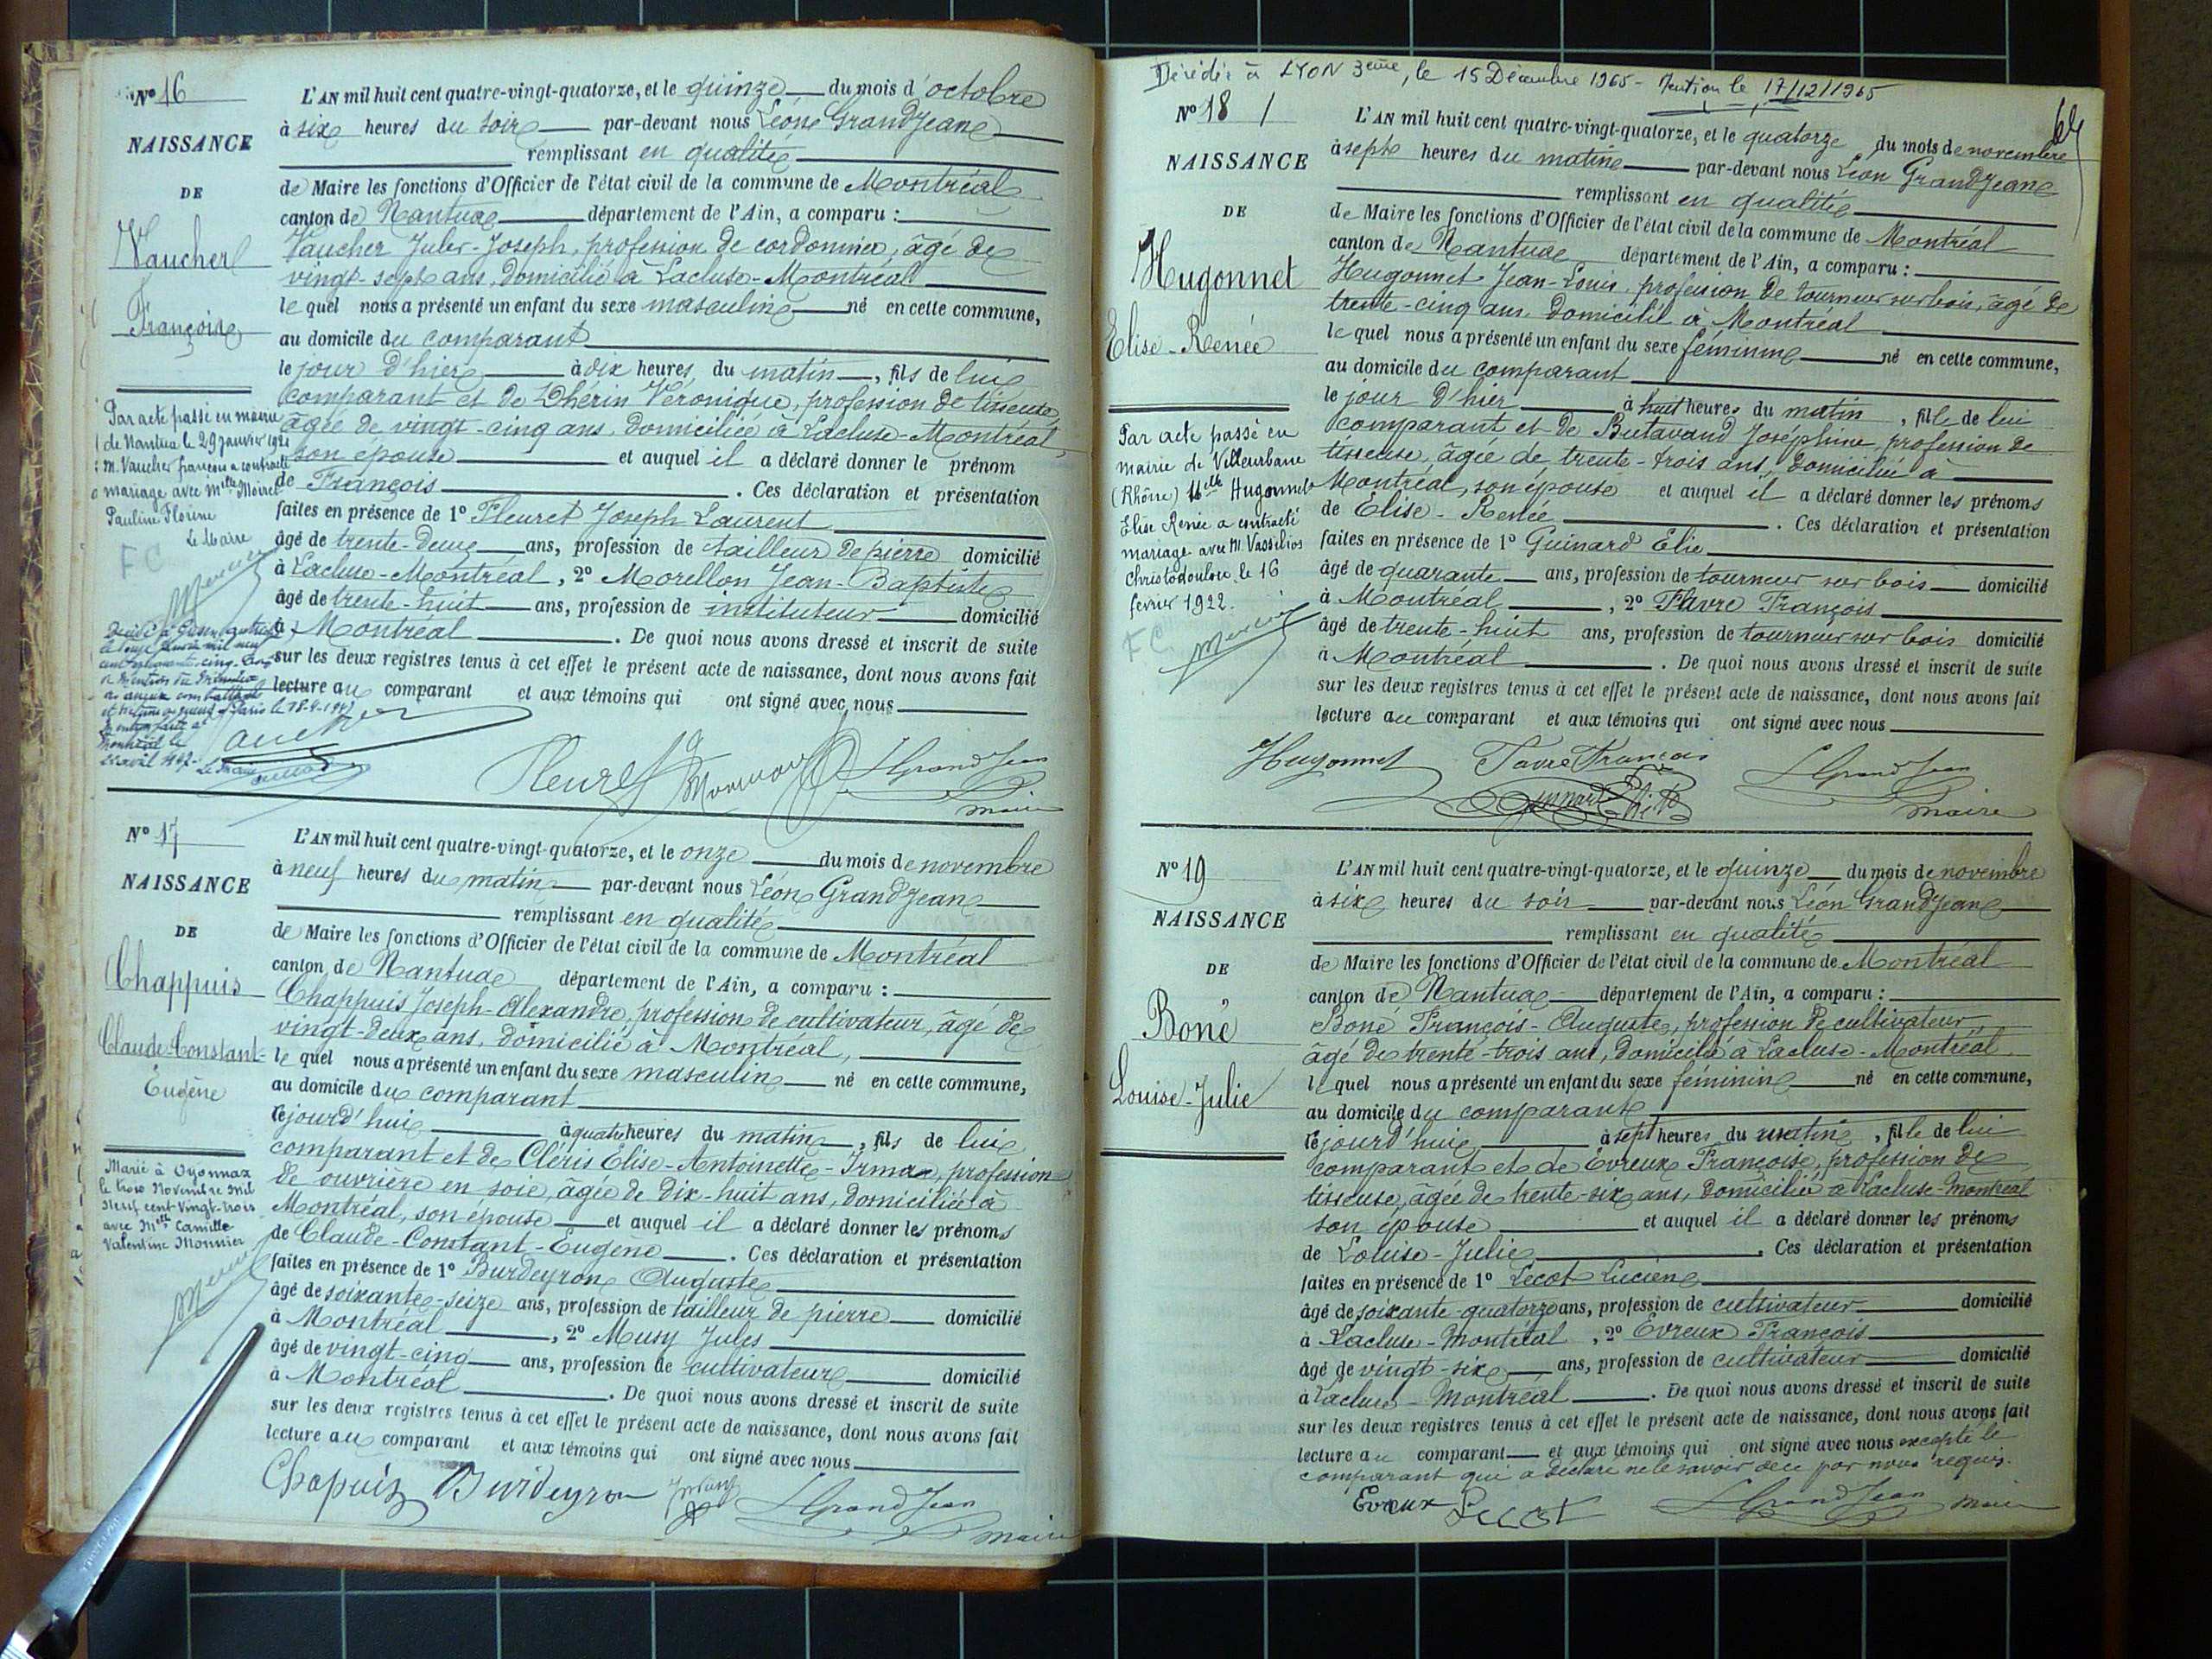 N° 16
NAISSANCE
DE
Vaucher
François
L'AN mil huit cent quatre-vingt-quatorze, et le quinze du mois d'octobre
à six heures du soir par-devant nous Léon Grandjean
remplissant en qualité
de Maire les fonctions d'Officier de l'état civil de la commune de Montréal
canton de Nantua département de l'Ain, a comparu :
Vaucher Jules-Joseph, profession de cordonnier, âgé de
vingt-sept ans, domicilié à Lacluse-Montréal
le quel nous a présenté un enfant du sexe masculin né en cette commune,
au domicile du comparant
le jour d'hier à dix heures du matin, fils de lui
comparant et de Dhérin Véronique, profession de tisseuse,
âgée de vingt-cinq ans, domiciliée à Lacluse-Montréal,
son épouse et auquel il a déclaré donner le prénom
de François. Ces déclaration et présentation
faites en présence de 1° Fleuret Joseph Laurent
âgé de trente-deux ans, profession de tailleur de pierre domicilié
à Lacluse-Montréal, 2° Morellon Jean-Baptiste
âgé de trente-huit ans, profession de instituteur domicilié
à Montréal. De quoi nous avons dressé et inscrit de suite
sur les deux registres tenus à cet effet le présent acte de naissance, dont nous avons fait
lecture au comparant et aux témoins qui ont signé avec nous
Fleuret
L Grand Jean
maire
Par acte passé en mairie
de Nantua le 29 janvier 1921
M. Vaucher françois a contracté
mariage avec Melle Moiret
Pauline Florine
Le Maire
FC
Mercier
N° 17
NAISSANCE
DE
Chappuis
Claude-Constant-
Eugène
L'AN mil huit cent quatre-vingt-quatorze, et le onze du mois de novembre
à neuf heures du matin par-devant nous Léon Grandjean
remplissant en qualité
de Maire les fonctions d'Officier de l'état civil de la commune de Montréal
canton de Nantua département de l'Ain, a comparu :
Chappuis Joseph-Alexandre, profession de cultivateur, âgé de
vingt-deux ans, domicilié à Montréal,
le quel nous a présenté un enfant du sexe masculin né en cette commune,
au domicile du comparant
le jourd'hui à quatre heures du matin, fils de lui
comparant et de Cléris Elise-Antoinette-Irma, profession
de ouvrière en soie, âgée de dix-huit ans, domiciliée à
Montréal, son épouse et auquel il a déclaré donner les prénoms
de Claude-Constant-Eugène. Ces déclaration et présentation
faites en présence de 1° Burdeyron Auguste
âgé de soixante-seize ans, profession de tailleur de pierre domicilié
à Montréal, 2° Musy Jules
âgé de vingt-cinq ans, profession de cultivateur domicilié
à Montréal. De quoi nous avons dressé et inscrit de suite
sur les deux registres tenus à cet effet le présent acte de naissance, dont nous avons fait
lecture au comparant et aux témoins qui ont signé avec nous
Chapuis Burdeyron
L Grand Jean
maire
Marié à Oyonnax
le trois Novembre mil
neuf cent vingt-trois
avec Melle Camille
Valentine Monnier
Mercier
Décédée à LYON 3ème, le 15 Décembre 1965 - Mention le 17/12/1965
N° 18
NAISSANCE
DE
Hugonnet
Elise-Renée
L'AN mil huit cent quatre-vingt-quatorze, et le quatorze du mois de novembre
à sept heures du matin par-devant nous Léon Grandjean
remplissant en qualité
de Maire les fonctions d'Officier de l'état civil de la commune de Montréal
canton de Nantua département de l'Ain, a comparu :
Hugonnet Jean-Louis, profession de tourneur sur bois, âgé de
trente-cinq ans, domicilié à Montréal
le quel nous a présenté un enfant du sexe féminin né en cette commune,
au domicile du comparant
le jour d'hier à huit heures du matin, fille de lui
comparant et de Butavand Joséphine, profession de
tisseuse, âgée de trente-trois ans, domiciliée à
Montréal, son épouse et auquel il a déclaré donner les prénoms
de Elise-Renée. Ces déclaration et présentation
faites en présence de 1° Guinard Elie
âgé de quarante ans, profession de tourneur sur bois domicilié
à Montréal, 2° Favre François
âgé de trente-huit ans, profession de tourneur sur bois domicilié
à Montréal. De quoi nous avons dressé et inscrit de suite
sur les deux registres tenus à cet effet le présent acte de naissance, dont nous avons fait
lecture au comparant et aux témoins qui ont signé avec nous
Hugonnet Favre François
L Grand Jean
maire
Par acte passé en
mairie de Villeurbane
(Rhône) Melle Hugonnet
Elise Renée a contracté
mariage avec M. Vassilios
Christodoulou le 16
fevrier 1922.
FC
Mercier
N° 19
NAISSANCE
DE
Boné
Louise-Julie
L'AN mil huit cent quatre-vingt-quatorze, et le quinze du mois de novembre
à six heures du soir par-devant nous Léon Grandjean
remplissant en qualité
de Maire les fonctions d'Officier de l'état civil de la commune de Montréal
canton de Nantua département de l'Ain, a comparu :
Boné François-Auguste, profession de cultivateur
âgé de trente-trois ans, domicilié à Lacluse-Montréal
le quel nous a présenté un enfant du sexe féminin né en cette commune,
au domicile du comparant
le jourd'hui à sept heures du matin, fille de lui
comparant et de Evreux Françoise, profession de
tisseuse, âgée de trente-six ans, domiciliée à Lacluse-Montréal
son épouse et auquel il a déclaré donner les prénoms
de Louise-Julie. Ces déclaration et présentation
faites en présence de 1° Lecot Lucien
âgé de soixante-quatorze ans, profession de cultivateur domicilié
à Lacluse-Montréal, 2° Evreux François
âgé de vingt-six ans, profession de cultivateur domicilié
à Lacluse-Montréal. De quoi nous avons dressé et inscrit de suite
sur les deux registres tenus à cet effet le présent acte de naissance, dont nous avons fait
lecture au comparant et aux témoins qui ont signé avec nous excepté le
comparant qui a déclaré ne le savoir de ce par nous requis.
Evreux Lecot L Grand Jean maire